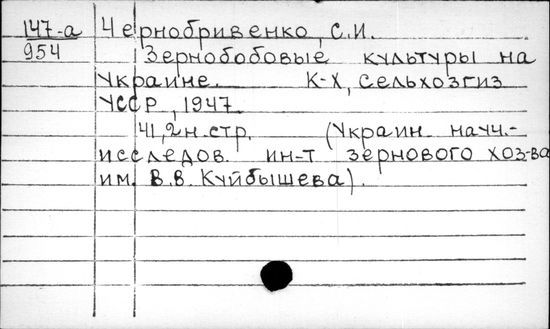 147-а Чернобривенко, С.И.
954 Зернобобовые культуры на
Украине. К-Х, Сельхозгиз
УССР, 1947.
41, 2н.стр. (Украин. научн.-
исследов. ин-т зернового хоз-ва
им. В.В. Куйбышева).